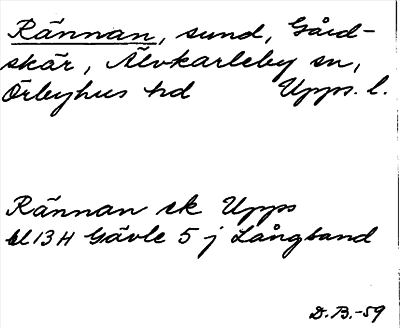 Rännan, sund, Gård-
skär, Älvkarleby sn,
Örbyhus hd Upps. l.
Rännan ek Upps
bl 13 H Gävle 5 j Långsand
D.B.-59